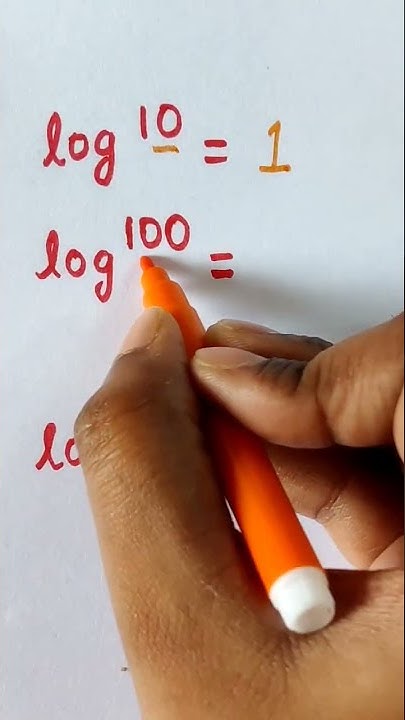 log 10 = 1
log 100 =